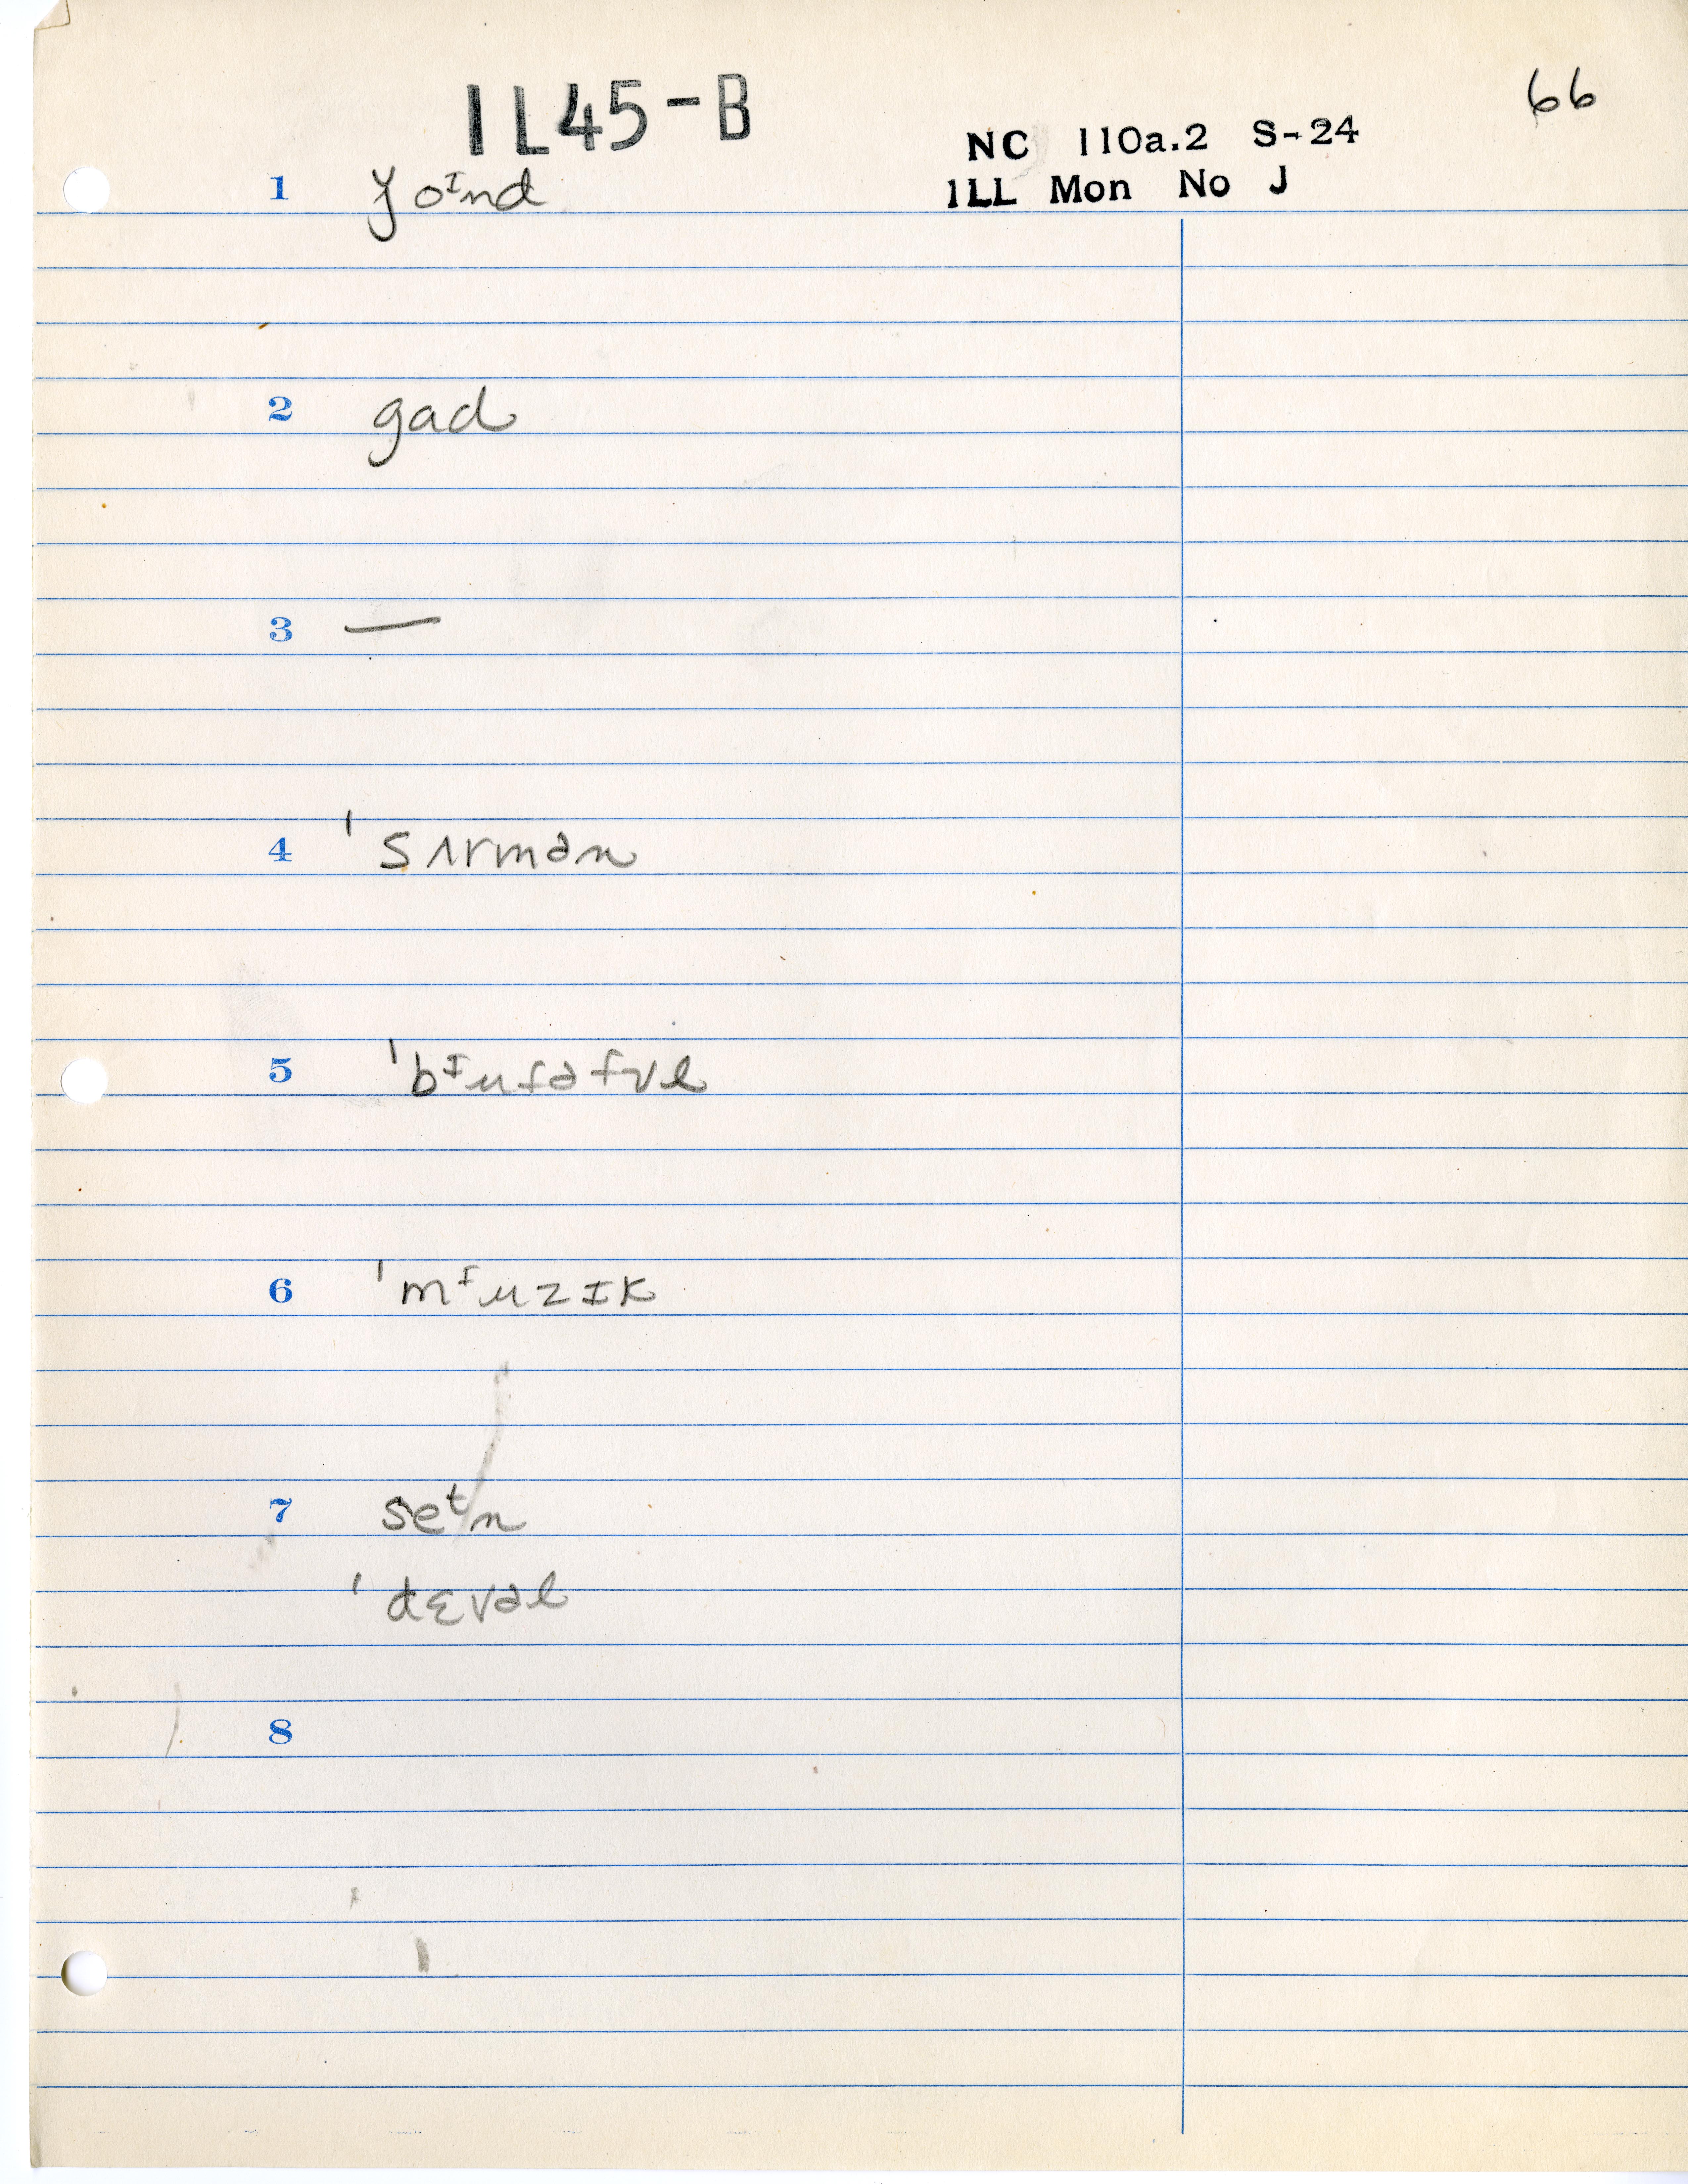 66
IL45-B
NC 110a.2 S-24
ILL Mon No J
1 ɉoᶦnd
2 gad
3 —
4 ˈsʌrmən
5 ˈbᶦufəfʊl
6 ˈmᶦuzɪk
7 seᵗn
ˈdɛvəl
8